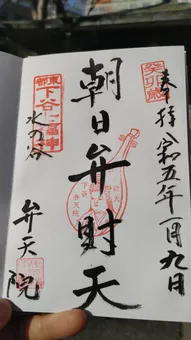 癸卯歳
奉拝
令和五年一月九日
朝日弁財天
東都
下谷七福神
水の谷
下谷
弁天院
弁天院